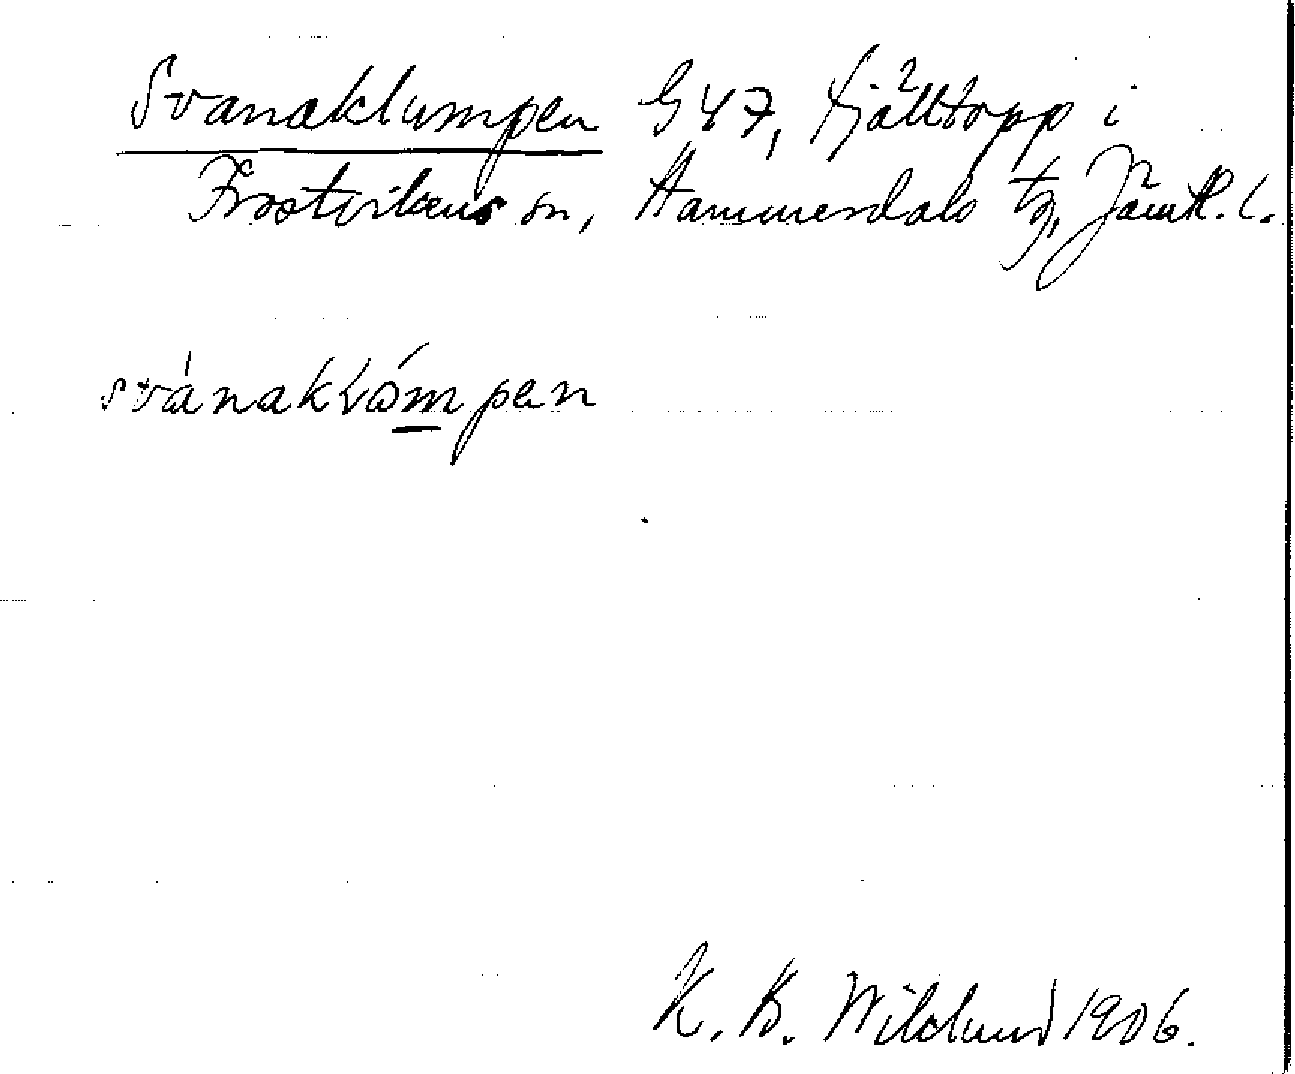 Svanaklumpen G 47, fjälltopp i
Frostvikens sn, Hammerdals tg, Jämtl. l.
svánakvómpen
K. B. Wiklund 1906.